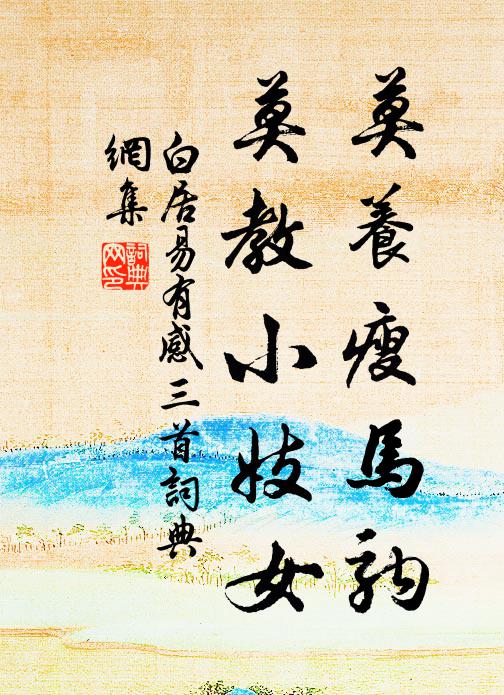 莫養瘦馬駒
莫教小妓女
白居易有感三首詞典
網集
詞典網印